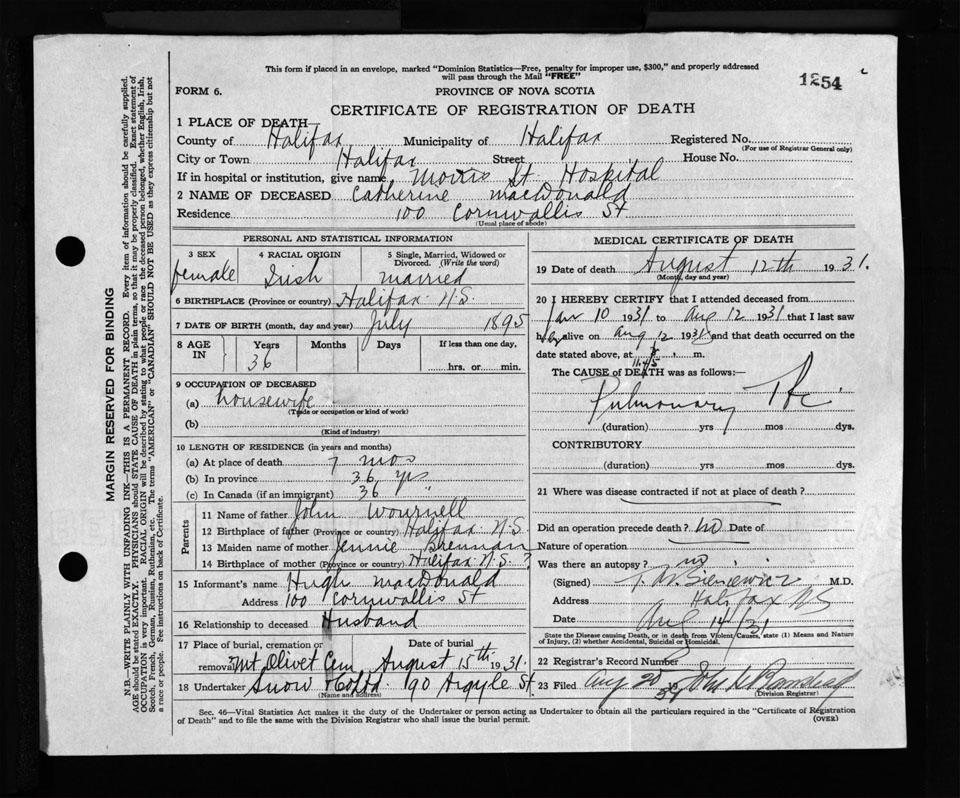 This form if placed in an envelope, marked "Dominion Statistics—Free, penalty for improper use, $300," and properly addressed
will pass through the Mail "FREE"
1254
FORM 6.
PROVINCE OF NOVA SCOTIA
CERTIFICATE OF REGISTRATION OF DEATH
1 PLACE OF DEATH
County of Halifax Municipality of Halifax Registered No.
(For use of Registrar General only)
City or Town Halifax Street House No.
If in hospital or institution, give name Morris St. Hospital
2 NAME OF DECEASED Catherine MacDonald
Residence 100 Cornwallis St
(Usual place of abode)
PERSONAL AND STATISTICAL INFORMATION
3 SEX 4 RACIAL ORIGIN 5 Single, Married, Widowed or
Divorced. (Write the word)
female Irish married
6 BIRTHPLACE (Province or country) Halifax N.S.
7 DATE OF BIRTH (month, day and year) July 1895
8 AGE IN Years Months Days If less than one day,
36 hrs. or min.
9 OCCUPATION OF DECEASED
(a) housewife
(Trade or occupation or kind of work)
(b)
(Kind of industry)
10 LENGTH OF RESIDENCE (in years and months)
(a) At place of death 7 mos
(b) In province 36 yrs
(c) In Canada (if an immigrant) 36 "
Parents
11 Name of father John Wournell
12 Birthplace of father (Province or country) Halifax N.S.
13 Maiden name of mother Jennie Brennan
14 Birthplace of mother (Province or country) Halifax N.S. ?
15 Informant's name Hugh MacDonald
Address 100 Cornwallis St
16 Relationship to deceased Husband
17 Place of burial, cremation or Date of burial
removal Mt Olivet Cem August 15th 1931.
18 Undertaker Snow & Co Ltd. 190 Argyle St
(Name and address)
MEDICAL CERTIFICATE OF DEATH
19 Date of death August 12th 1931.
(Month, day and year)
20 I HEREBY CERTIFY that I attended deceased from
Jan 10 1931 to Aug 12 1931 that I last saw
her alive on Aug 12 1931 and that death occurred on the
date stated above, at 11.45 m.
The CAUSE of DEATH was as follows:—
Pulmonary Tbc
(duration) yrs mos dys.
CONTRIBUTORY
(duration) yrs mos dys.
21 Where was disease contracted if not at place of death?
Did an operation precede death? no Date of
Nature of operation
Was there an autopsy? no
(Signed) T. M. Sieniewicz M.D.
Address Halifax NS
Date Aug 14/31
State the Disease causing Death, or in death from Violent Causes, state (1) Means and Nature
of Injury, (2) whether Accidental, Suicidal or Homicidal.
22 Registrar's Record Number
23 Filed Aug 20 1931
(Division Registrar)
Sec. 46—Vital Statistics Act makes it the duty of the Undertaker or person acting as Undertaker to obtain all the particulars required in the "Certificate of Registration
of Death" and to file the same with the Division Registrar who shall issue the burial permit.
(OVER)
MARGIN RESERVED FOR BINDING
N.B.—WRITE PLAINLY WITH UNFADING INK—THIS IS A PERMANENT RECORD. Every item of information should be carefully supplied.
AGE should be stated EXACTLY. PHYSICIANS should STATE CAUSE OF DEATH in plain terms, so that it may be properly classified. Exact statement of
OCCUPATION is very important. RACIAL ORIGIN will be described by stating to what people or race the deceased person belonged, whether English, Irish,
Scotch, French, German, Russian, Ruthenian, etc. The terms "AMERICAN" or "CANADIAN" SHOULD NOT BE USED as they express citizenship but not
a race or people. See instructions on back of Certificate.